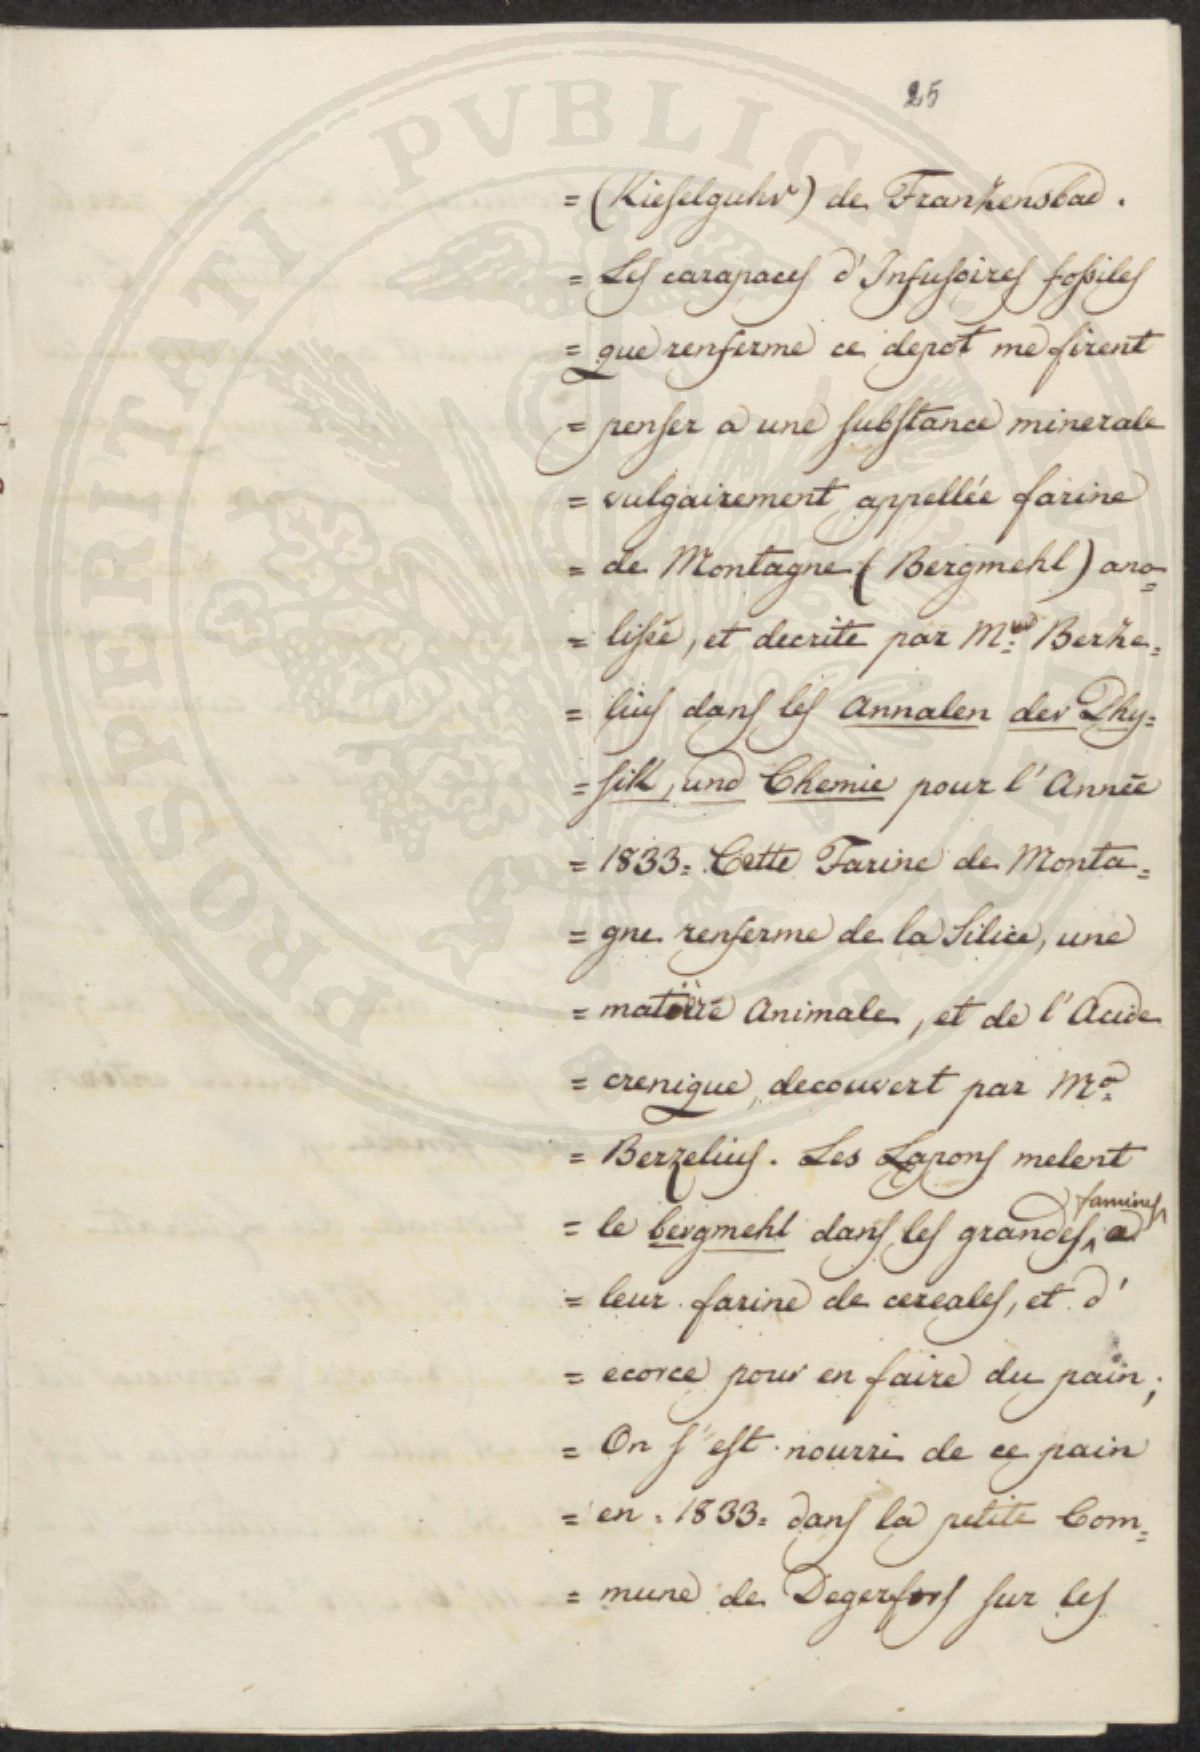 PROSPERITATI PVBLICAE AVGENDAE
25
= (Kieselguhr) de Frankensbad.
= Les carapaces d'Infusoires fossiles
= que renferme ce depot me firent
= penser a une substance minerale
= vulgairement appellée farine
= de Montagne (Bergmehl) ana=
= lisée, et decrite par Mr. Berze=
= lius dans les Annalen der Phy=
= sik, und Chemie pour l'Année
= 1833= Cette Farine de Monta=
= gne renferme de la Silice, une
= matiere Animale, et de l'Acide
= crenique, decouvert par Mr.
= Berzelius. Les Lapons melent
= le bergmehl dans les grandes famines a
= leur farine de cereales, et d'
= ecorce pour en faire du pain;
= On s'est nourri de ce pain
= en = 1833= dans la petite Com=
= mune de Degerfors sur les